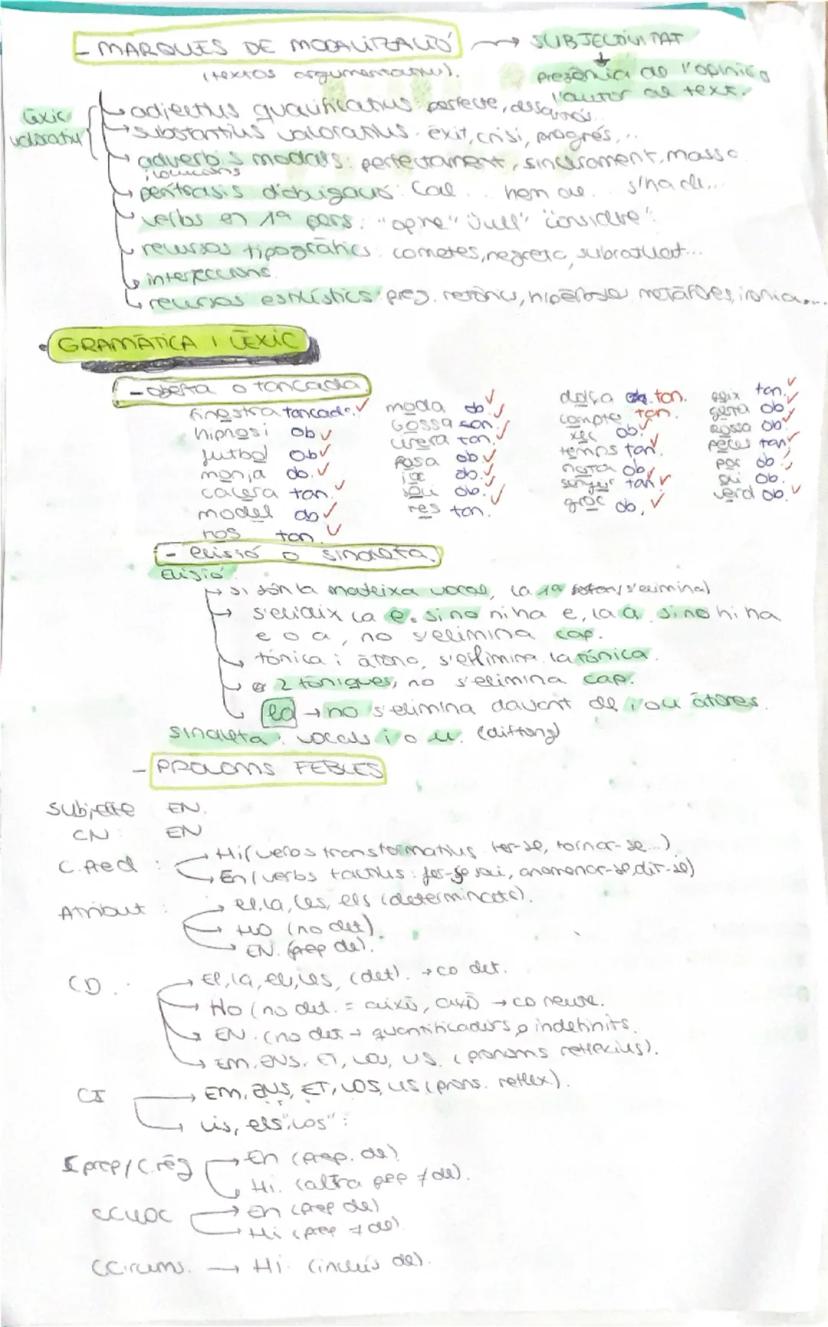 - MARQUES DE MODALITZACIÓ → SUBJECTIVITAT
(textos argumentatius). presència de l'opinió
l'autor al text.
Lèxic
valoratiu
adjectius qualificatius: perfecte,
substantius valoratius: èxit, crisi, progrés,...
adverbis modals: perfectament, sincerament, massa
locucions
perífrasis d'obligació: Cal... hem de... s'ha de...
verbs en 1ª pers:
recursos tipogràfics: cometes, negreta, subratllat...
interjeccions
recursos estilístics: preg. retòrica, hipèrbole, metàfores, ironia,...
GRAMÀTICA I LÈXIC
- oberta o tancada
finestra tancada. moda ob dolça ton. ton.
hipnosi ob Gossa ton compte ton. gerra ob
futbol ob cirera tan. xec ob. ob
monja ob. Rosa ob temps tan. peces tan
cacera tan. ob. nora ob por ob.
model ob sou ob. tan ob.
nos tan res tan. groc ob, verd ob.
- elisió o sinalefa.
Elisió:
si són la mateixa vocal, la 1ª s'elimina)
s'elideix la e. si no ni ha e, la a. si no hi ha
e o a, no s'elimina cap.
tònica i àtona, s'elimina la tònica.
2 tòniques, no s'elimina cap.
la → no s'elimina davant de i o u àtones.
sinalefa: vocals i o u. (diftong)
- PRONOMS FEBLES
Subjecte EN.
CN: EN
C. Pred : Hi (verbs transformatius fer-se, tornar-se...)
En (verbs factius: fer-se dir, anomenar-se, dir-se)
Atribut : el, la, les, els (determinats).
HO (no det).
EN. (prep de).
CD. : El, la, els, les, (det). → CD det.
Ho (no det. = això, allò → CD neutre.
EN. (no det → quantificadors o indefinits.
EM, ENS, ET, US. (pronoms reflexius).
CI EM, ENS, ET, US (prons. reflex).
els
C prep/C. règ En (prep. de)
Hi. (altra prep ≠ de).
CCLLOC En (prep de)
Hi (prep ≠ de).
CCircums. → Hi (inclús de).